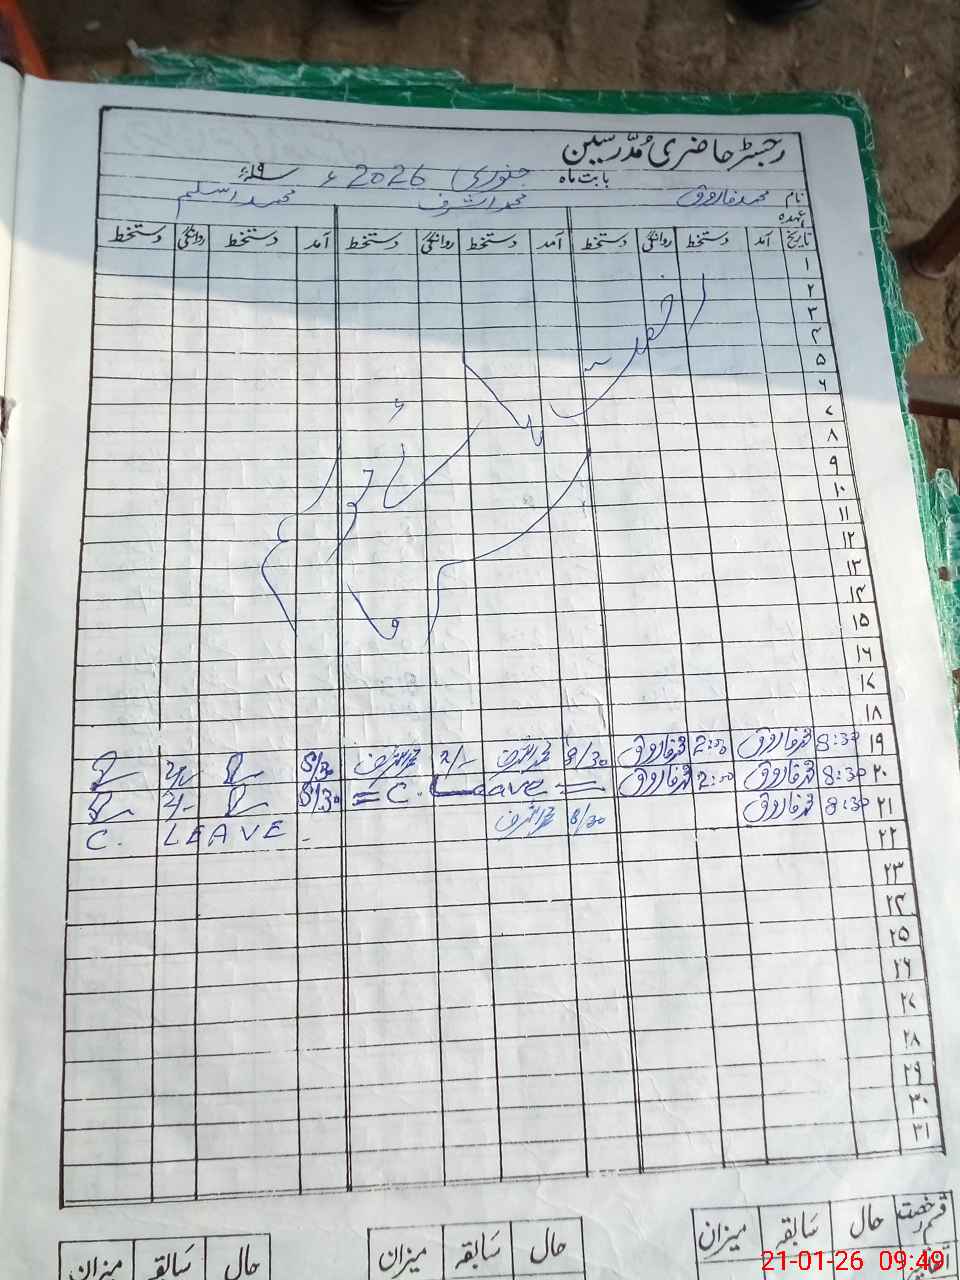 رجسٹر حاضری مُدّرسین
بابت ماہ جنوری 2026ء سنہ ١٩ء
نام محمد فاروق محمد اشرف محمد اسلم
عہدہ
تاریخ آمد دستخط روانگی دستخط آمد دستخط روانگی دستخط آمد دستخط روانگی دستخط
١
٢
٣
۴
۵
۶
۷
٨
٩
١٠
١١
١٢
١٣
١۴
١۵
١۶
١۷
١٨
١٩ 8:30 محمد فاروق 2:00 محمد فاروق 8/30 محمد اشرف 2/- محمد اشرف 8/30 2/-
٢٠ 8:30 محمد فاروق 2:00 محمد فاروق = C. Leave = 8/30 2/-
٢١ 8:30 محمد فاروق 8/30 محمد اشرف C. LEAVE -
٢٢
٢٣
٢۴
٢۵
٢۶
٢۷
٢٨
٢٩
٣٠
٣١
قسم رخصت حال سابقہ میزان حال سابقہ میزان حال سابقہ میزان
اتفاقیہ
21-01-26 09:49